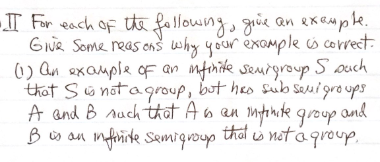 II For each of the following, give an example.
Give Some reasons why your example is correct.
(1) An example of an infinite semigroup S such
that S is not a group, but has subsemigroups
A and B such that A is an infinite group and
B is an infinite semigroup that is not a group.